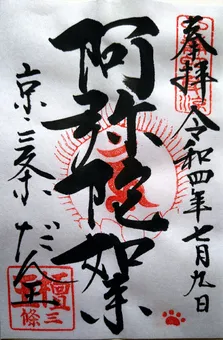 奉拝
令和四年七月九日
阿弥陀如来
京三条
だん王
檀王
三條